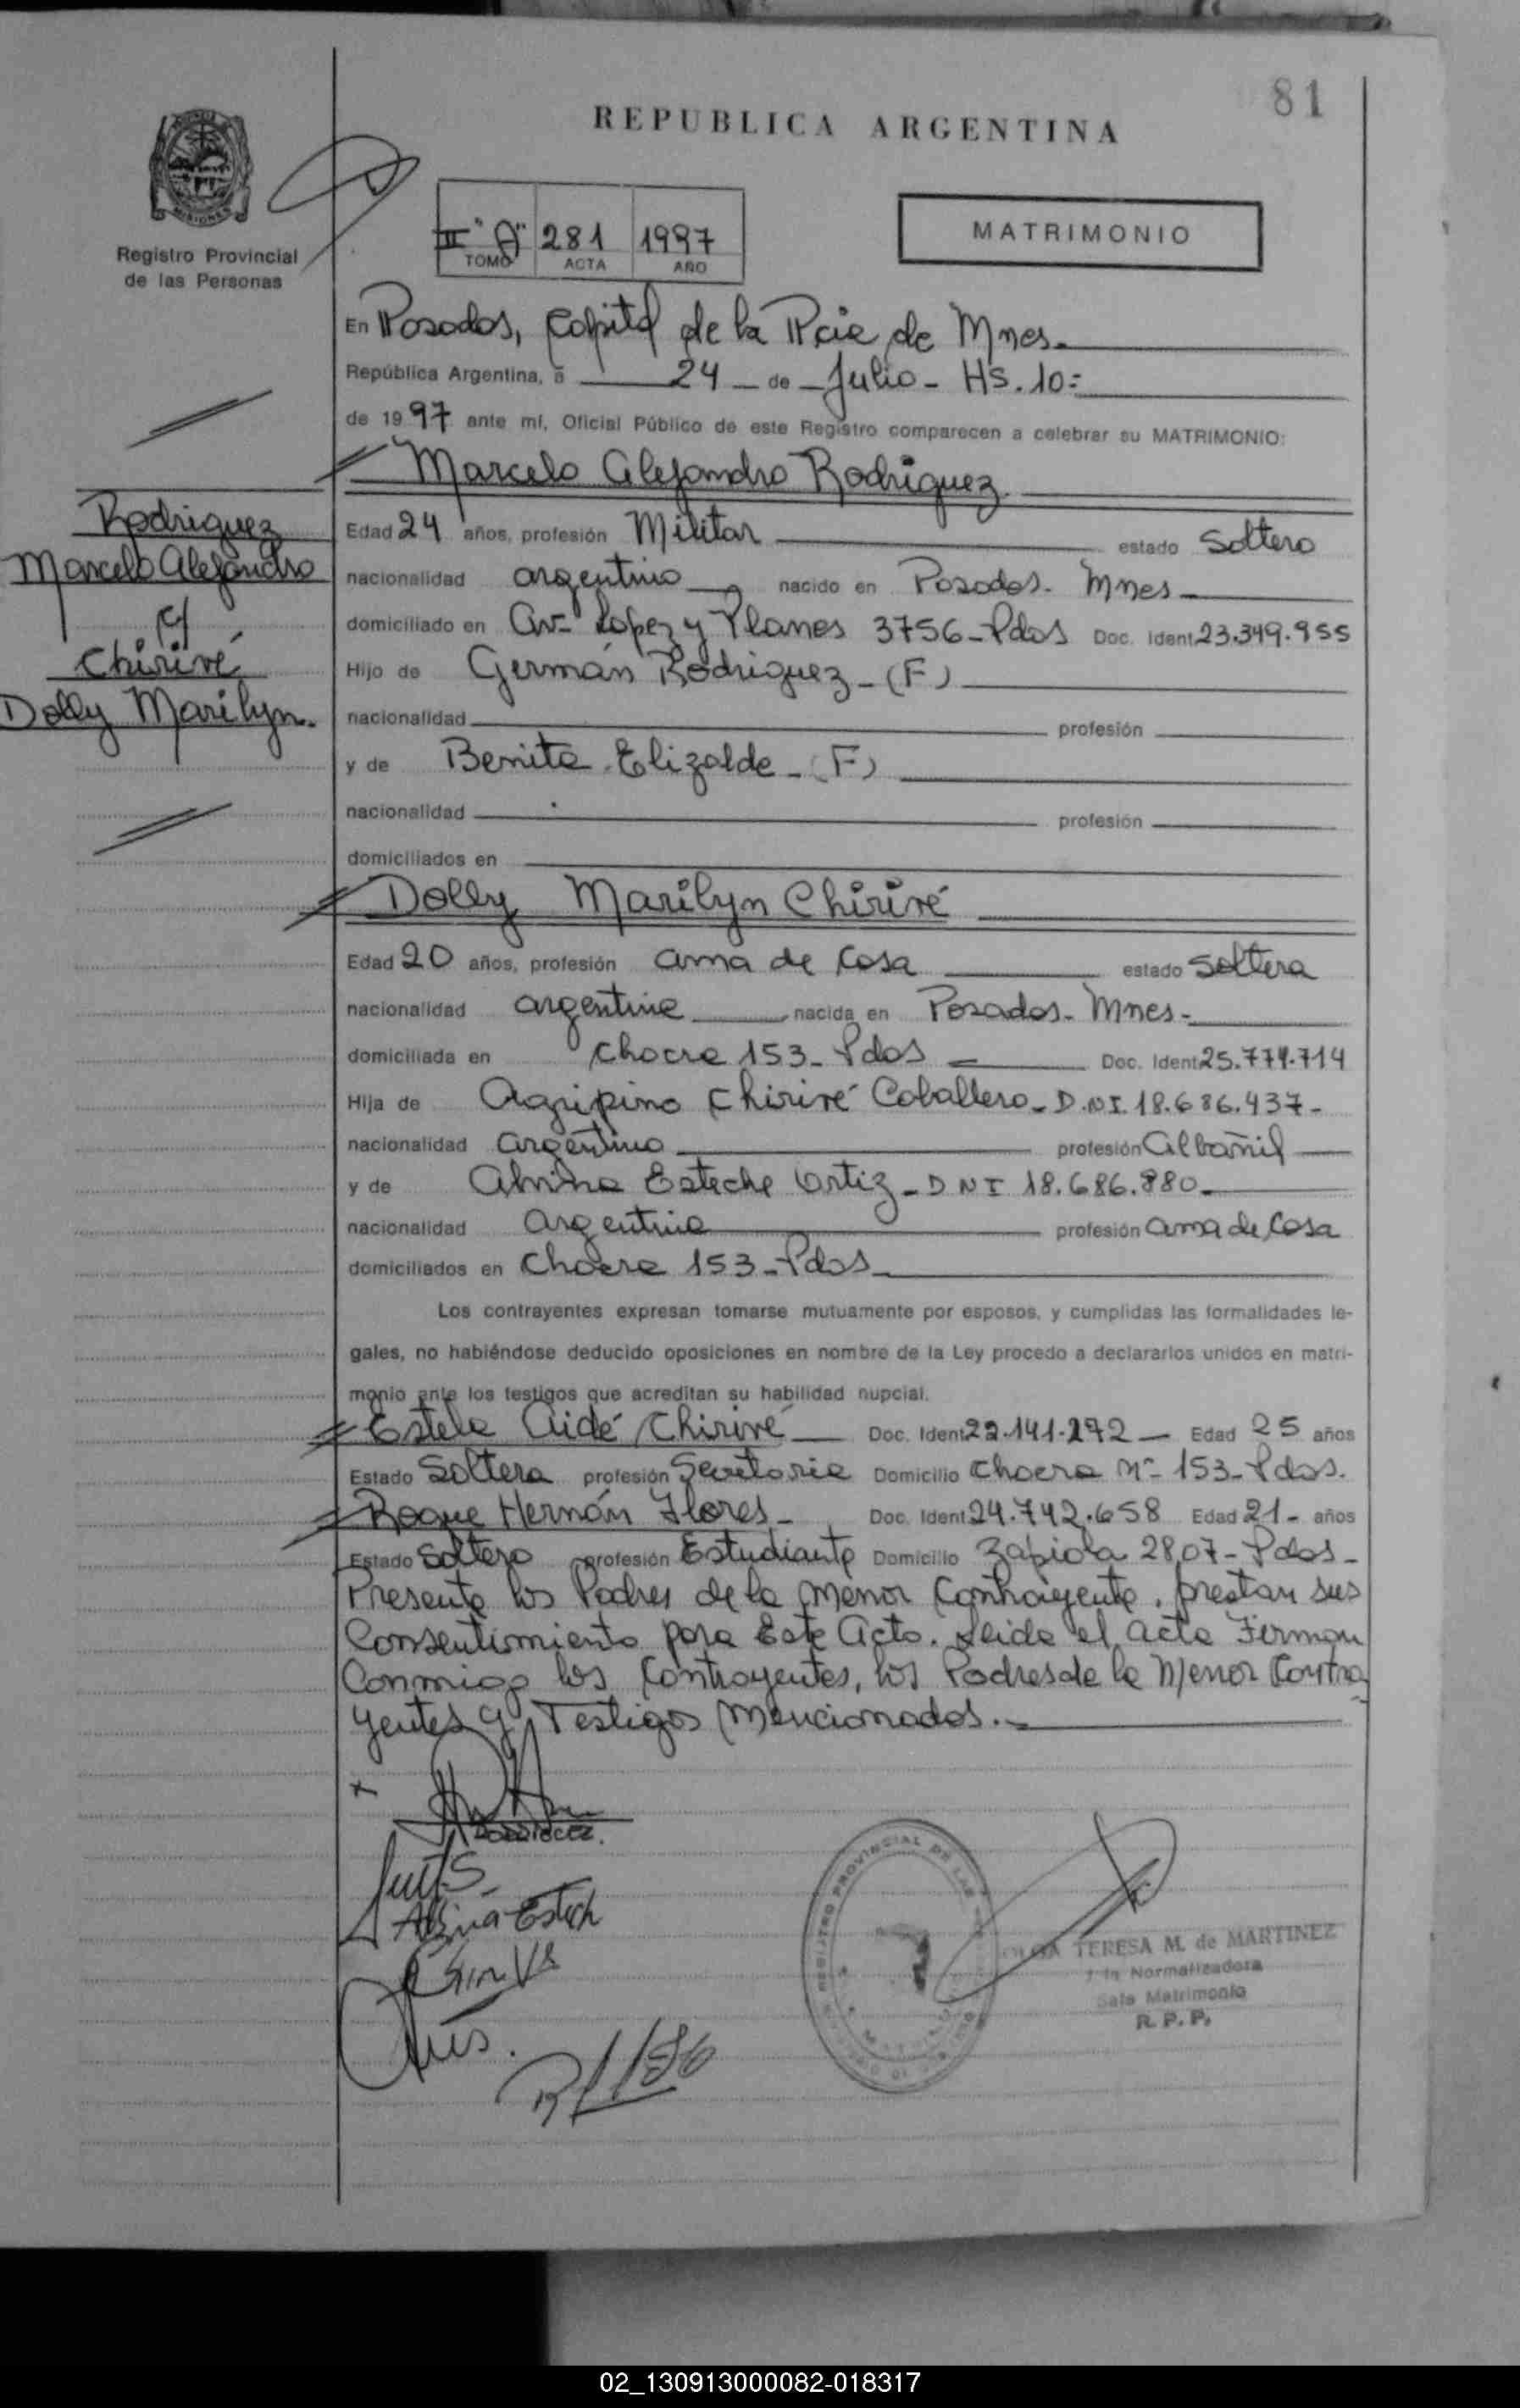 81
REPUBLICA ARGENTINA
MISIONES
Registro Provincial
de las Personas
II "A" 281 1997
TOMO ACTA AÑO
MATRIMONIO
En Posadas, Capital de la Pcia de Mnes.
República Argentina, a 24 de Julio - HS. 10=
de 1997 ante mí, Oficial Público de este Registro comparecen a celebrar su MATRIMONIO:
Marcelo Alejandro Rodriguez
Rodriguez
Marcelo Alejandro
c/
Chirivé
Dolly Marilyn.
Edad 24 años, profesión Militar estado Soltero
nacionalidad argentino nacido en Posadas - Mnes
domiciliado en Av. Lopez y Planes 3756 - Pdas Doc. Ident. 23.349.955
Hijo de Germán Rodriguez - (F)
nacionalidad profesión
y de Benita Elizalde - (F)
nacionalidad profesión
domiciliados en
Dolly Marilyn Chirivé
Edad 20 años, profesión ama de Casa estado Soltera
nacionalidad argentina nacida en Posadas - Mnes -
domiciliada en Chacra 153 - Pdas Doc. Ident.
Hija de Agripino Chirivé Caballero - D.N.I. 18.686.437 -
nacionalidad argentino profesión Albañil
y de Albina Esteche Ortiz - D N I 18.686.880 -
nacionalidad argentina profesión ama de Casa
domiciliados en Chacra 153 - Pdas
Los contrayentes expresan tomarse mutuamente por esposos, y cumplidas las formalidades le-
gales, no habiéndose deducido oposiciones en nombre de la Ley procedo a declararlos unidos en matri-
monio ante los testigos que acreditan su habilidad nupcial.
Estela Aidé Chirivé Doc. Ident. Edad 25 años
Estado Soltera profesión Secretaria Domicilio Chacra Nº 153 - Pdas.
Roque Hernán Flores - Doc. Ident. 24.742.658 Edad 21 - años
Estado Soltero profesión Estudiante Domicilio Zapiola 2807 - Pdas -
Presente los Padres de la menor Contrayente, prestan sus
Consentimiento para Este Acto. Leida el acta Firman
Conmigo los Contrayentes, los Padres de la Menor Contra
yentes y Testigos Mencionados.
RODRIGUEZ.
Albina Estech
REGISTRO PROVINCIAL DE LAS
TERESA M. de MARTINEZ
Normalizadora
Sala Matrimonio
R. P. P.
02_130913000082-018317